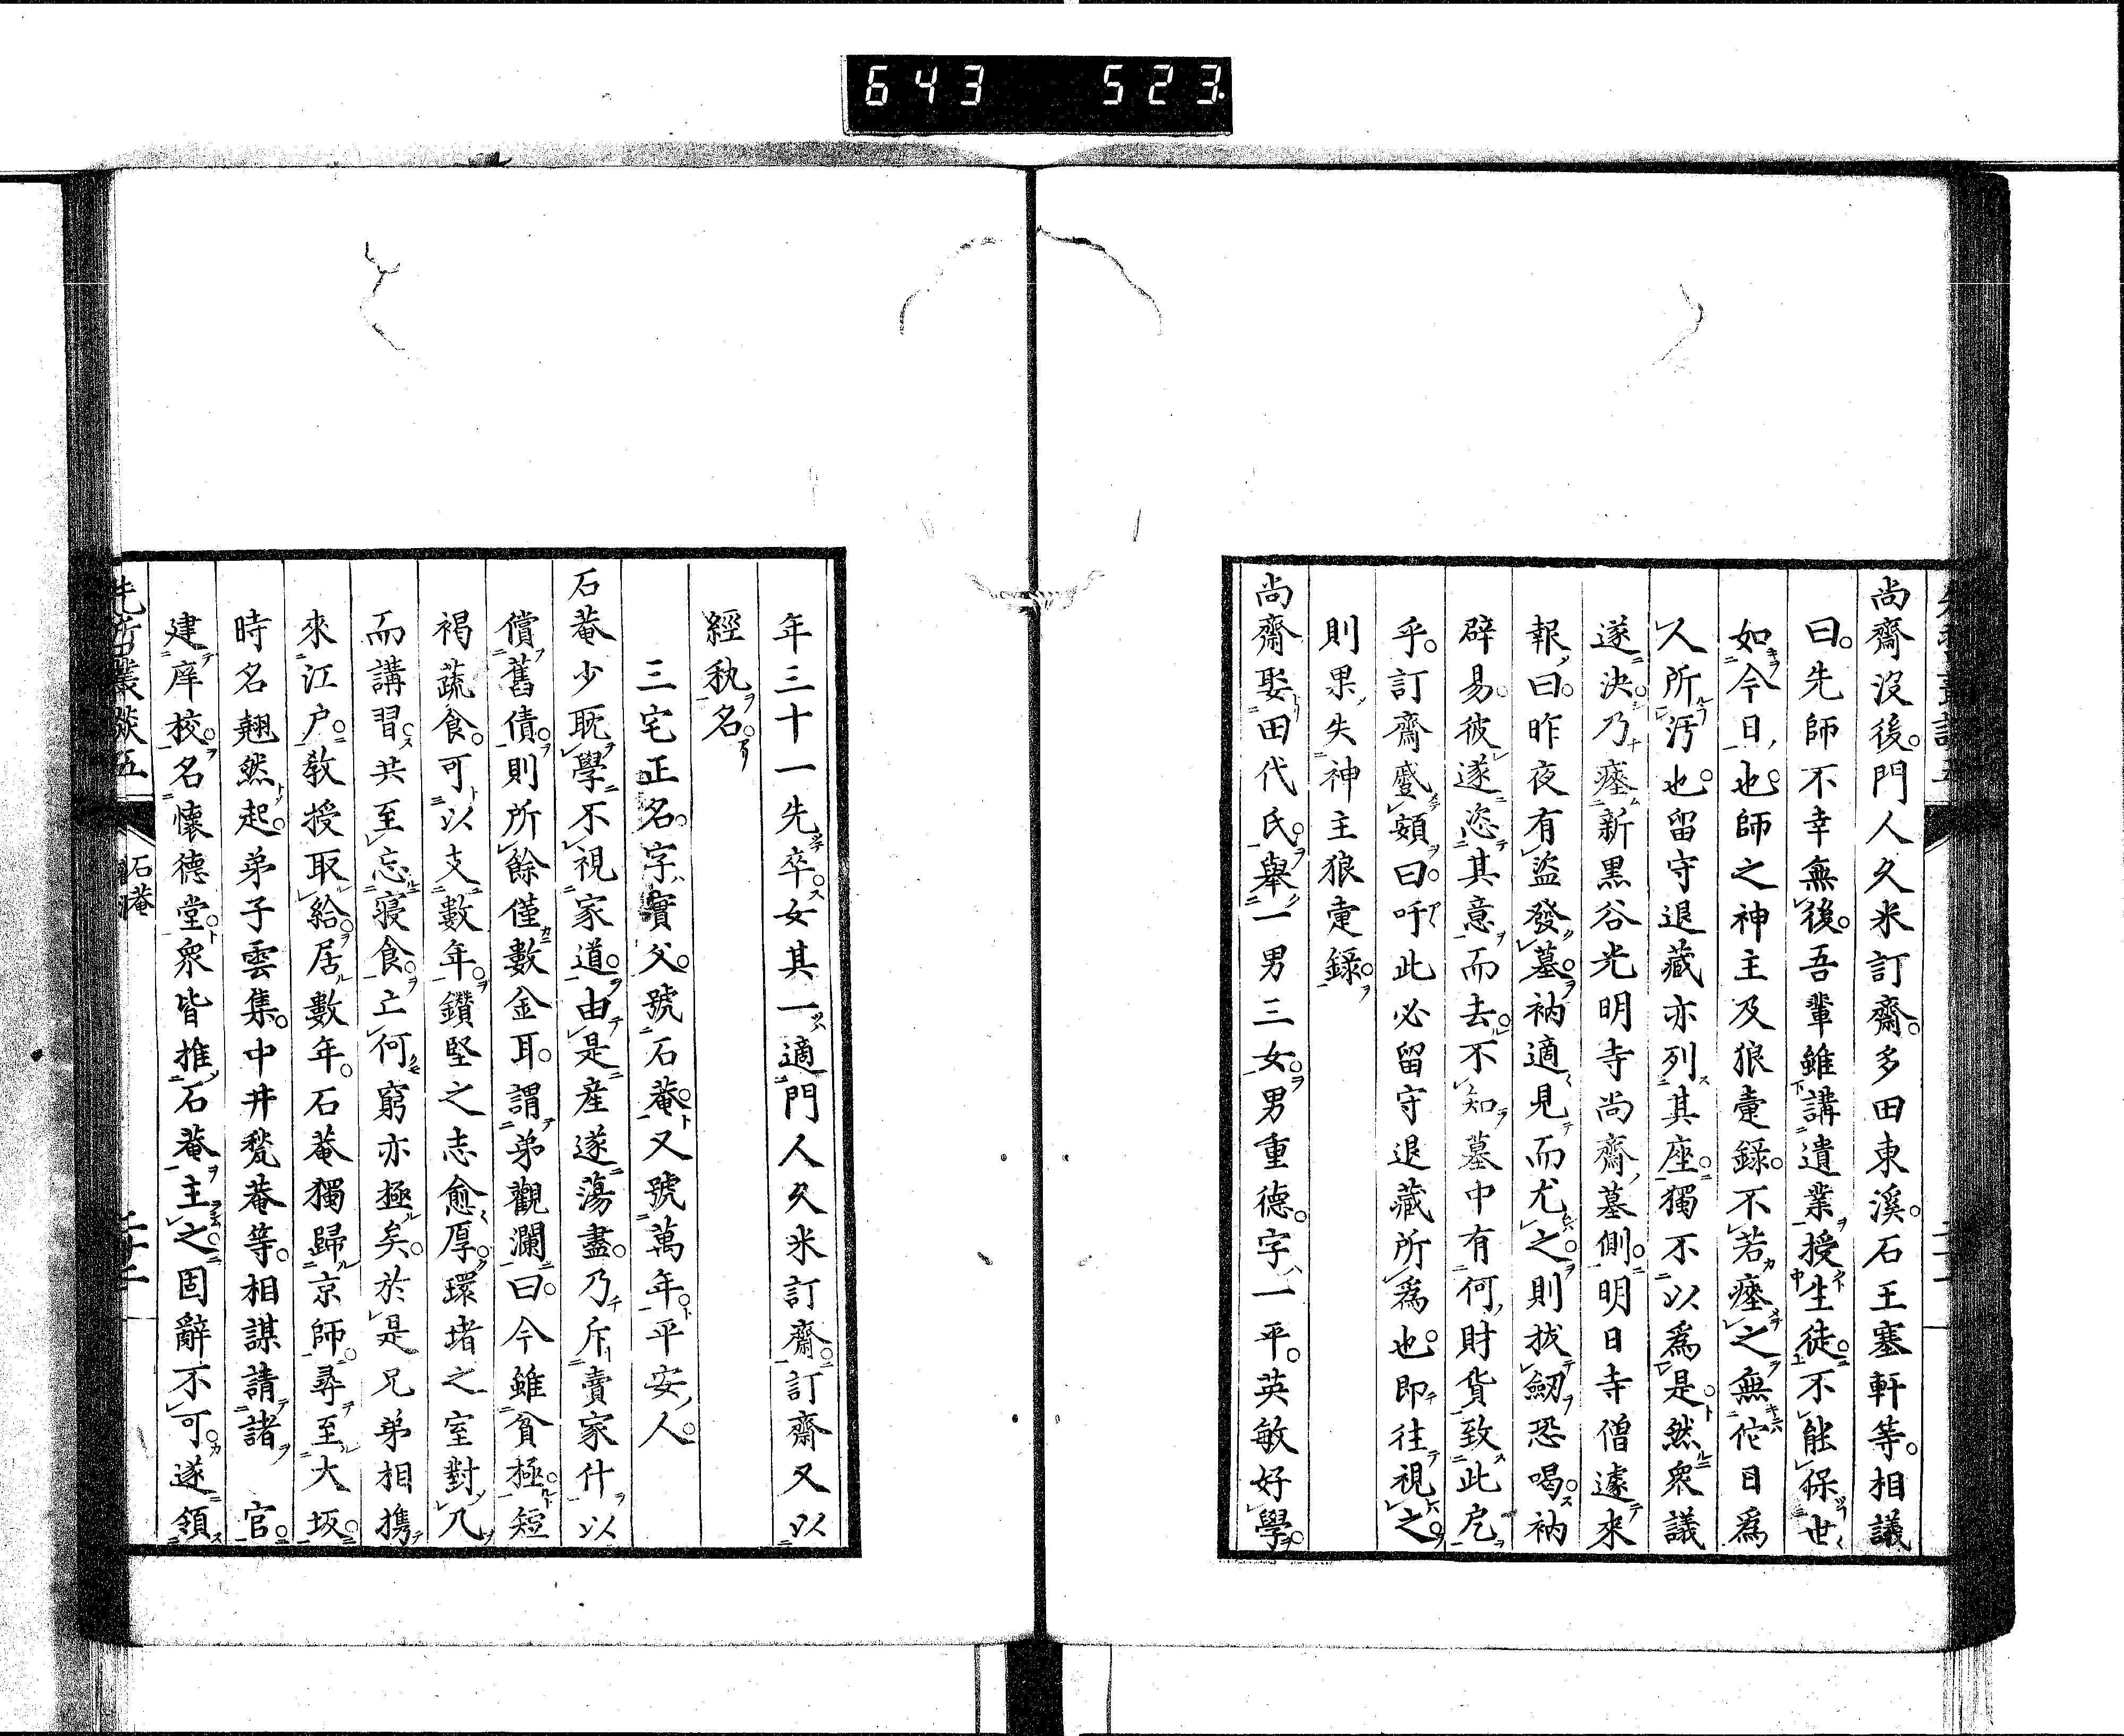 643 523
尚齋沒後。門人久米訂齋。多田東溪。石王塞軒等。相議
曰。先師不幸無後。吾輩雖講遺業授生徒。不能保世
如今日也。師之神主及狼疐錄。不若瘞之。無佗日爲
人所汚也。留守退藏亦列其座。獨不以爲是。然衆議
遂決。乃瘞新黒谷光明寺尚齋墓側。明日寺僧遽來
報曰。昨夜有盜發墓。衲適見而尤之。則拔劒恐喝。衲
辟易。彼遂恣其意而去。不知墓中有何財貨致此
乎。訂齋蹙頞曰。吁此必留守退藏所爲也。即往視之。
則果失神主狼疐錄。
尚齋娶田代氏。舉一男三女。男重德。字一平。英敏好學。
年三十一先卒。女其一適門人久米訂齋。訂齋又以
經執名。
三宅正名。字實父。號石菴。又號萬年。平安人。
石菴少耽學。不視家道。由是產遂蕩盡。乃斥賣家什以
償舊債。則所餘僅數金耳。謂弟觀瀾曰。今雖貧極。短
褐蔬食。可以支數年。鑽堅之志愈厚。環堵之室對几
而講習。共至忘寢食。亡何窮亦極矣。於是兄弟相攜
來江户。敎授取給。居數年。石菴獨歸京師。尋至大坂。
時名翹然起。弟子雲集。中井甃菴等。相謀請諸 官。
建庠校。名懷德堂。衆皆推石菴主之。固辭不可。遂領
先哲叢談五
石菴